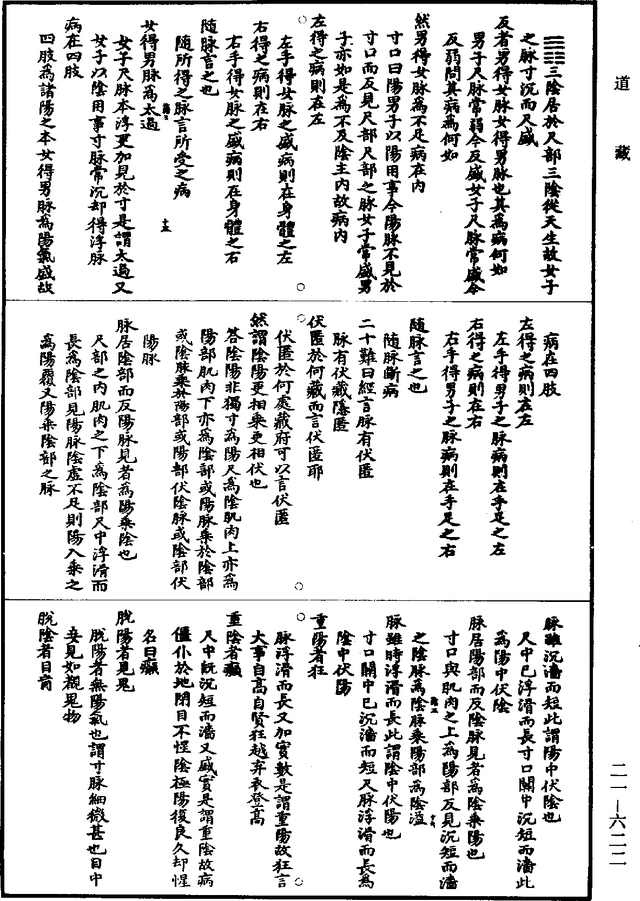 道藏
三陰居於尺部三陰從天生故女子
之脉寸沉而尺盛
反者男得女脉女得男脉也其為病何如
男子尺脉常弱今反盛女子尺脉常盛今
反弱問其病為何如
然男得女脉為不足病在內
寸口曰陽男子以陽用事今陽脉不見於
寸口而反見尺部尺部之脉女子常盛男
子亦如是為不及陰主內故病內
左得之病則在左
左手得女脉之盛病則在身體之左
右得之病則在右
右手得女脉之盛病則在身體之右
隨脉言之也
隨所得之脉言所受之病
女得男脉為太過
女子尺脉本浮更加見於寸是謂太過又
女子以陰用事寸脉常沉却得浮脉
病在四肢
四肢為諸陽之本女得男脉為陽氣盛故
病在四肢
左得之病則在左
左手得男子之脉病則在手足之左
右得之病則在右
右手得男子之脉病則在手足之右
隨脉言之也
隨脉斷病
二十難曰經言脉有伏匿
脉有伏藏隱匿
伏匿於何藏而言伏匿耶
伏匿於何處藏府可以言伏匿
然謂陰陽更相乘更相伏也
答陰陽非獨寸為陽尺為陰肌肉上亦為
陽部肌肉下亦為陰部或陽脉乘於陰部
或陰脉乘於陽部或陽部伏陰脉或陰部伏
陽脉
脉居陰部而反陽脉見者為陽乘陰也
尺部之內肌肉之下為陰部尺中浮滑而
長為陰部見陽脉陰虛不足則陽入乘之
為陽覆又陽乘陰部之脉
脉雖沉濇而短此謂陽中伏陰也
尺中已浮滑而長寸口關中沉短而濇此
為陽中伏陰
脉居陽部而反陰脉見者為陰乘陽也
寸口與肌肉之上為陽部反見沉短而濇
之陰脉為陰脉乘陽部為陰溢
脉雖時浮滑而長此謂陰中伏陽也
寸口關中已沉濇而短尺脉浮滑而長為
陰中伏陽
重陽者狂
脉浮滑而長又加實數是謂重陽故狂言
大事自高自賢狂越弃衣登高
重陰者癲
尺中既沉短而濇又盛實是謂重陰故病
僵仆於地閉目不惺陰極陽復良久却惺
名曰癲
脫陽者見鬼
脫陽者無陽氣也謂寸脉細微甚也目中
妄見如覩鬼物
脫陰者目盲
二一—六二二